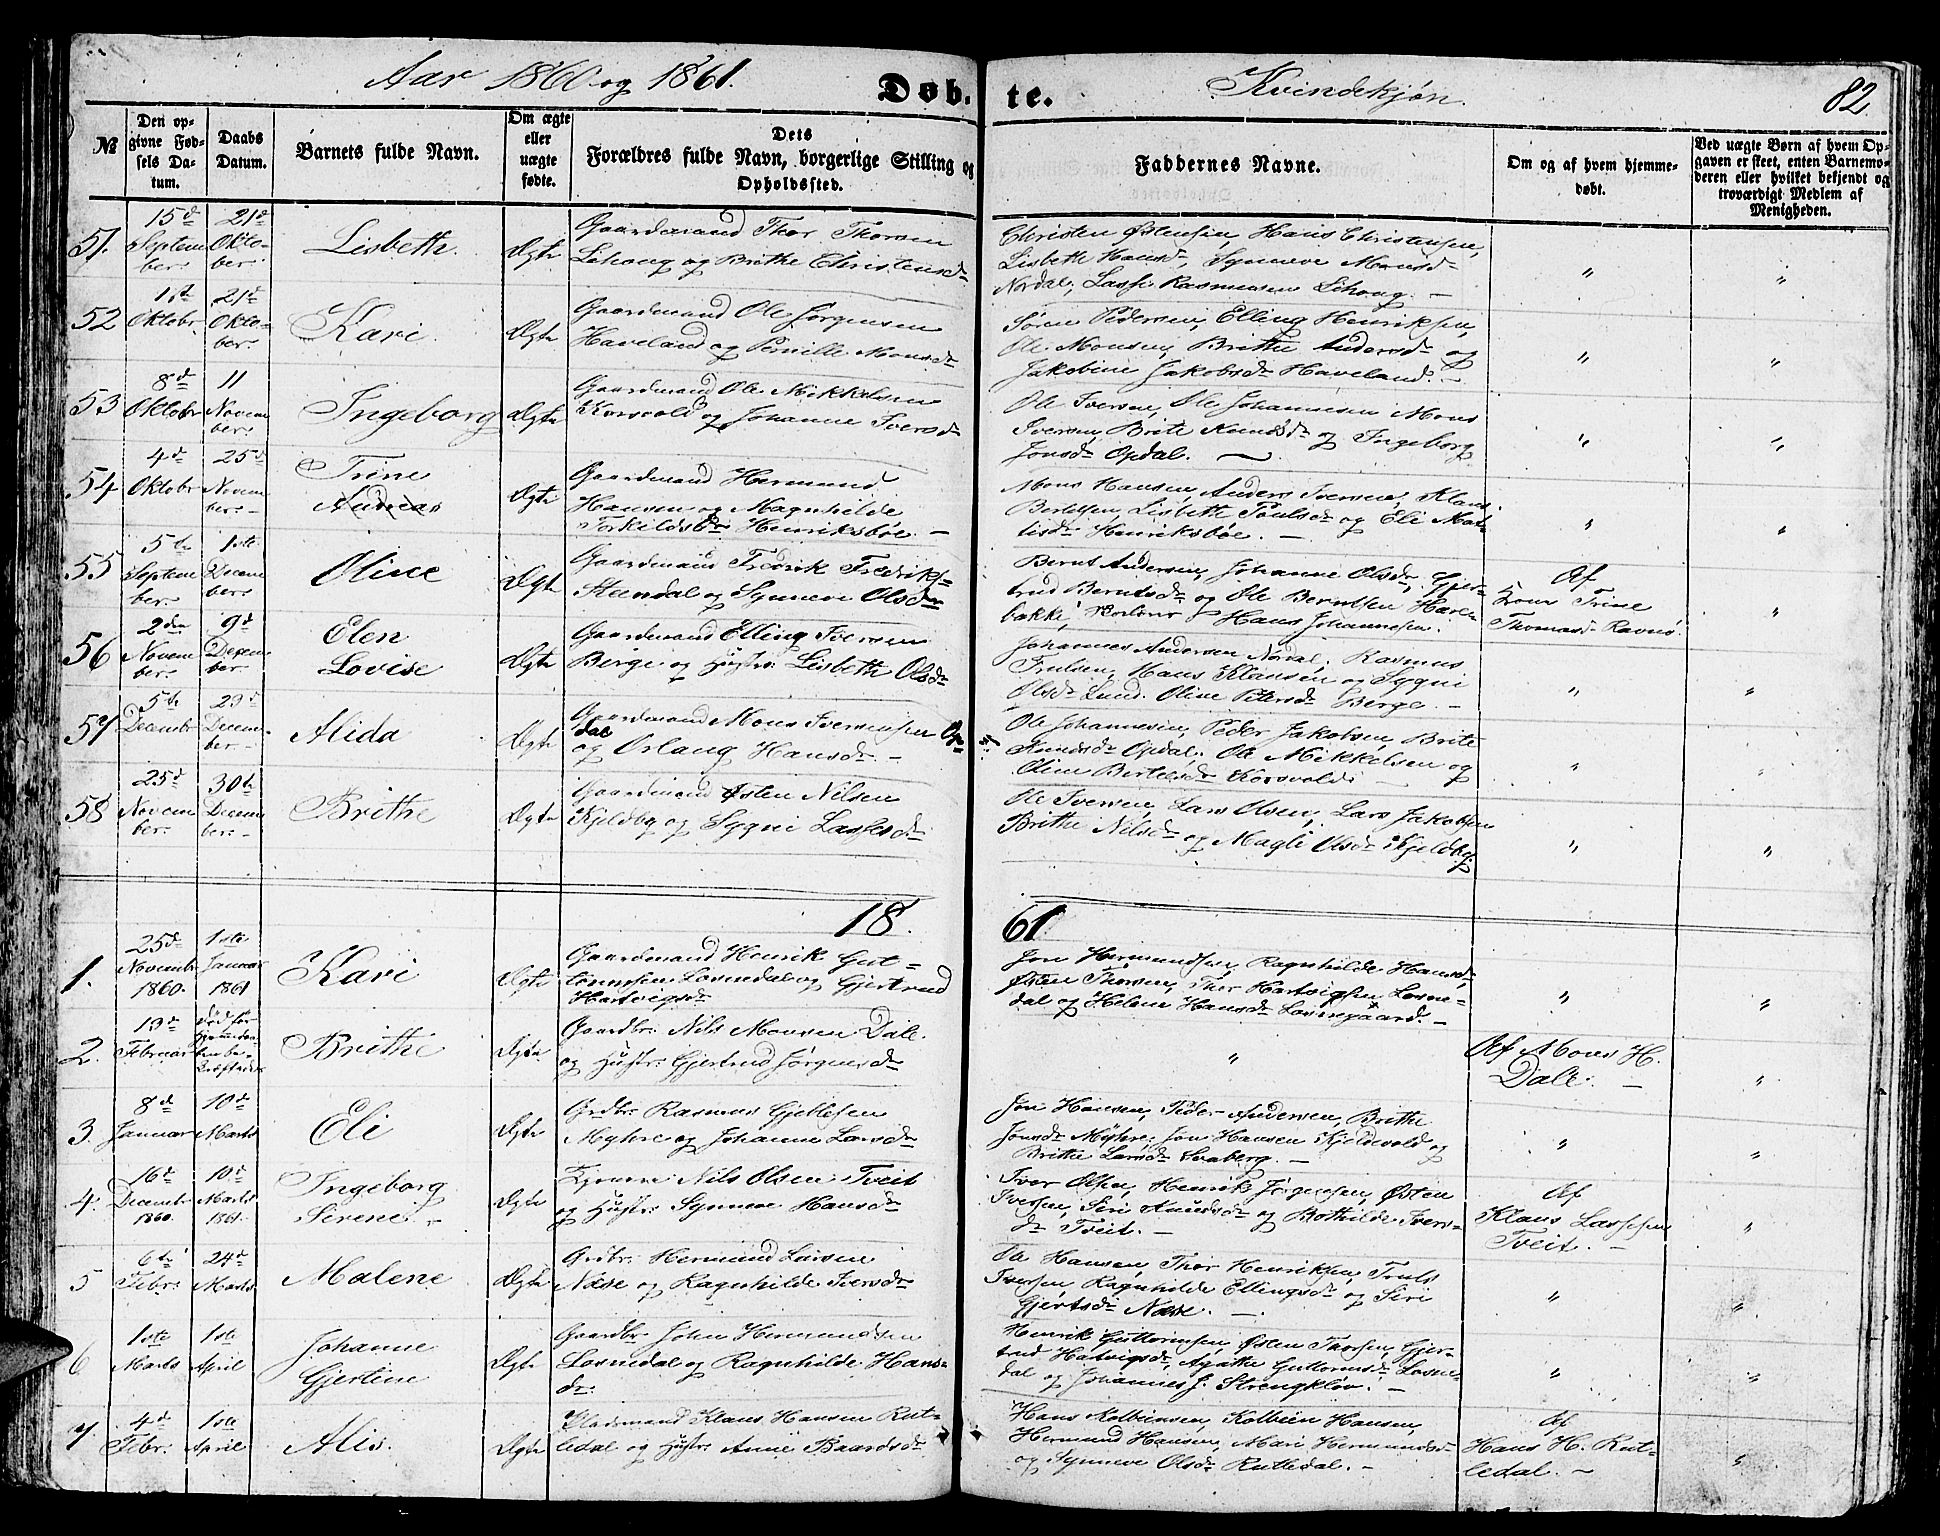 Aar 1860 og 1861.
Døb-te.
Kvindekjøn
82
№
Den opgivne Fødsels Datum.
Daabs Datum.
Barnets fulde Navn.
Om ægte eller uægte fødte.
Dets Forældres fulde Navn, borgerlige Stilling og Opholdssted.
Faddernes Navne.
Om og af hvem hjemmedøbt.
Ved uægte Børn af hvem Opgaven er skeet, enten Barnemoderen eller hvilket bekjendt og troværdigt Medlem af Menigheden.
51.
15d September
21d Oktober
Lisbeth.
Ægte
Gaardmand Thor Thorsen
Lihoug og Brithe Christensd
Christen Østensen, Hans Christensen,
Lisbeth Hansd, Synneve Monsd
Nordal, Lasse Rasmussen Lihoug. –
52
1ste Oktobr
21d Oktober
Kari.
Ægte
Gaardmand Ole Jørgensen
Haveland og Pernille Monsd
Søren Pedersen, Elling Henriksen,
Ole Monsen, Brithe Andersd og
Jakobine Jakobsd Haveland. –
53
8d Oktobr
11 November
Ingeborg
Ægte
Gaardmand Ole Mikkelsen
Korsvold og Johanne Iversd
Ole Iversen, Ole Johannesen Mons
Iversen, Brite Knudsd og Ingeborg
Jonsd Opdal. –
54
4d Oktobr
25d November –
Trine
Andreas
Ægte
Gaardmand Hermund
Hansen og Magnhilde
Torkildsd Henriksbøe. –
Mons Hansen, Anders Iversen, Klaus
Bertelsen, Lisbeth Poulsd og Eli Mattisd Henriksbøe. –
55
5te September
1ste December
Oline
Ægte
Gaardmand Fredrik Fredriks-
Steendal og Synneve Olsd
Bernt Andersen, Johanne Olsd, Gjertrud Berntsd og Ole Berntsen Haven-
bakke, Hans Johannesen.
Af
Kone Trine
Thomasd Ravnø.
56
2den November
9d December
Elen
Lovise
Ægte
Gaardmand Elling Iversen
Berge og Hustr: Lisbeth Olsd
Johannes Andersen Nordal. Rasmus
Trulsen, Hans Klausen og Sygni
Olsd Lund. Oline Petersd Berge. –
57
5te Decembr
23d December –
Alida
Ægte
Gaardmand Mons Iversen Op-
dal
og Ørlaug Hansd –
Ole Johannesen, Peder Jakobsen, Brite
Knudsd Opdal. Ole Mikkelsen og
Oline Bertelsd Korsvold –
58
25d November
30te December –
Brithe
Ægte
Gaardmand Østen Nilsen
Kjeldby og Sygni Lassesd
Ole Iversen, Lars Olsen, Lars Jakobsen
Brithe Nilsd og Magli Olsd Kjeldby.
1861
1.
25d Novembr 1860.
1ste Januar 1861
Kari
Ægte
Gaardmand Henrik Gut-
tormsen Losnedal og Gjertrud
Hartvigsd
Jon Hermundsen, Ragnhilde Hansd,
Østen Thorsen, Thor Hartvigsen Losne-
dal og Helene Hansd Losnegaard. –
2.
13d Februar
Død før Hjemmedaaben bekræftedes
Brithe
Ægte
Gaardbr: Nils Monsen Dale.
og Hustr: Gjertrud Jørgensd
Af Mons H.
Dale. –
3.
8d Januar
10d Marts
Eli
Ægte
Grdbr: Rasmus Gjellesen
Myhre og Johanne Larsd
Jon Hansen, Peder Andersen, Brithe
Jonsd Myhre; Jon Hansen Kjeldevold og
Brithe Larsd Svaberg. –
4.
16d Decembr 1860.
10d Marts 1861.
Ingeborg
Sirene. –
Ægte
Nils Olsen Tveit
og Hustr: Synneve Hansd
Iver Olsen, Henrik Jørgensen, Østen
Iversen, Siri Knudsd og Bothilde Ivers-
d Tveit. –
Af
Klaus Lassesen
Tveit. –
5
6te Febr:
24d Marts
Malene
Ægte
Grdbr: Hermund Larsen
Næse og Ragnhilde Iversd
Ole Hansen, Thor Henriksen, Truls
Iversen, Ragnhilde Ellingsd og Siri
Gjertsd Næse. –
6
1ste Marts
1ste April
Johanne
Gjertine
Ægte
Gaardbr: John Hermundsen
Losnedal og Ragnhilde Hans-
d.
Henrik Guttormsen, Østen Thorsen, Gjer-
trud Hatvigsd, Agathe Guttormsd Losne-
dal og Johannes J. Strengkløv. –
7
4d Febr:
1ste April
Alis.
Ægte
Pladsmand Klaus Hansen Rut-
ledal og Hustr: Anne Baardsd
Hans Kolbensen, Kolbein Hansen,
Hermund Hansen, Mari Hermundsd
og Synneve Olsd Rutledal. –
Af
Hans H. Rut-
ledal. –